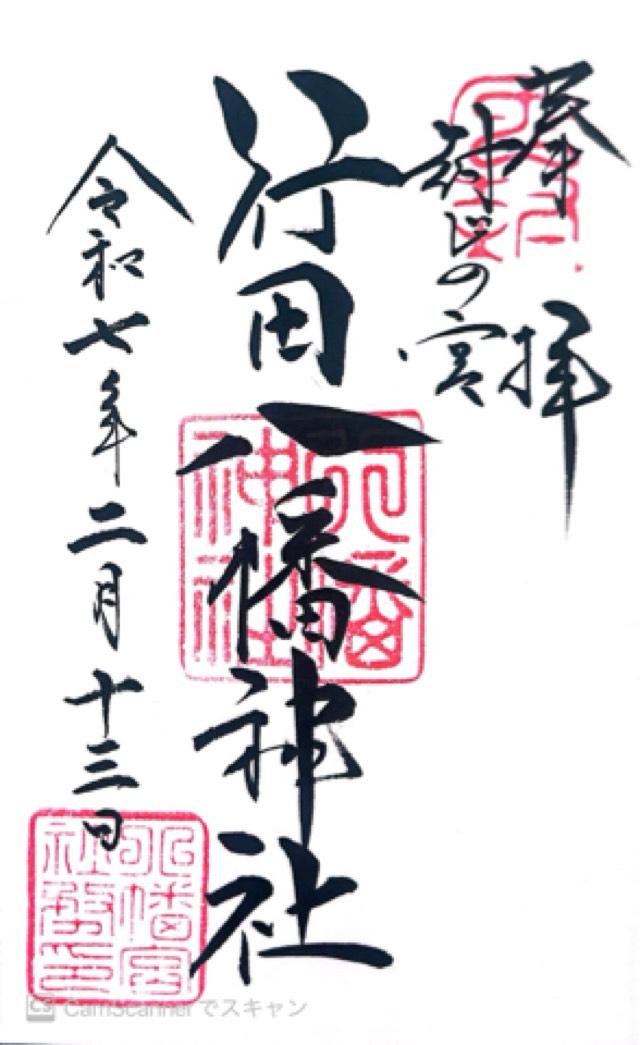 奉拝
封じの宮
行田八幡神社
令和七年二月十三日
八幡神社
CS CamScannerでスキャン